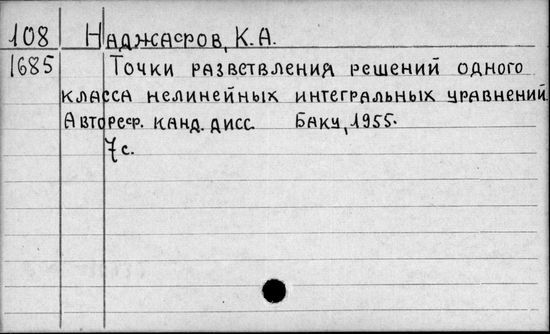 108 Наджафов, К. А.
1685 Точки разветвления решений одного
класса нелинейных интегральных уравнений
Автореф. канд. дисс. Баку, 1955.
7 с.